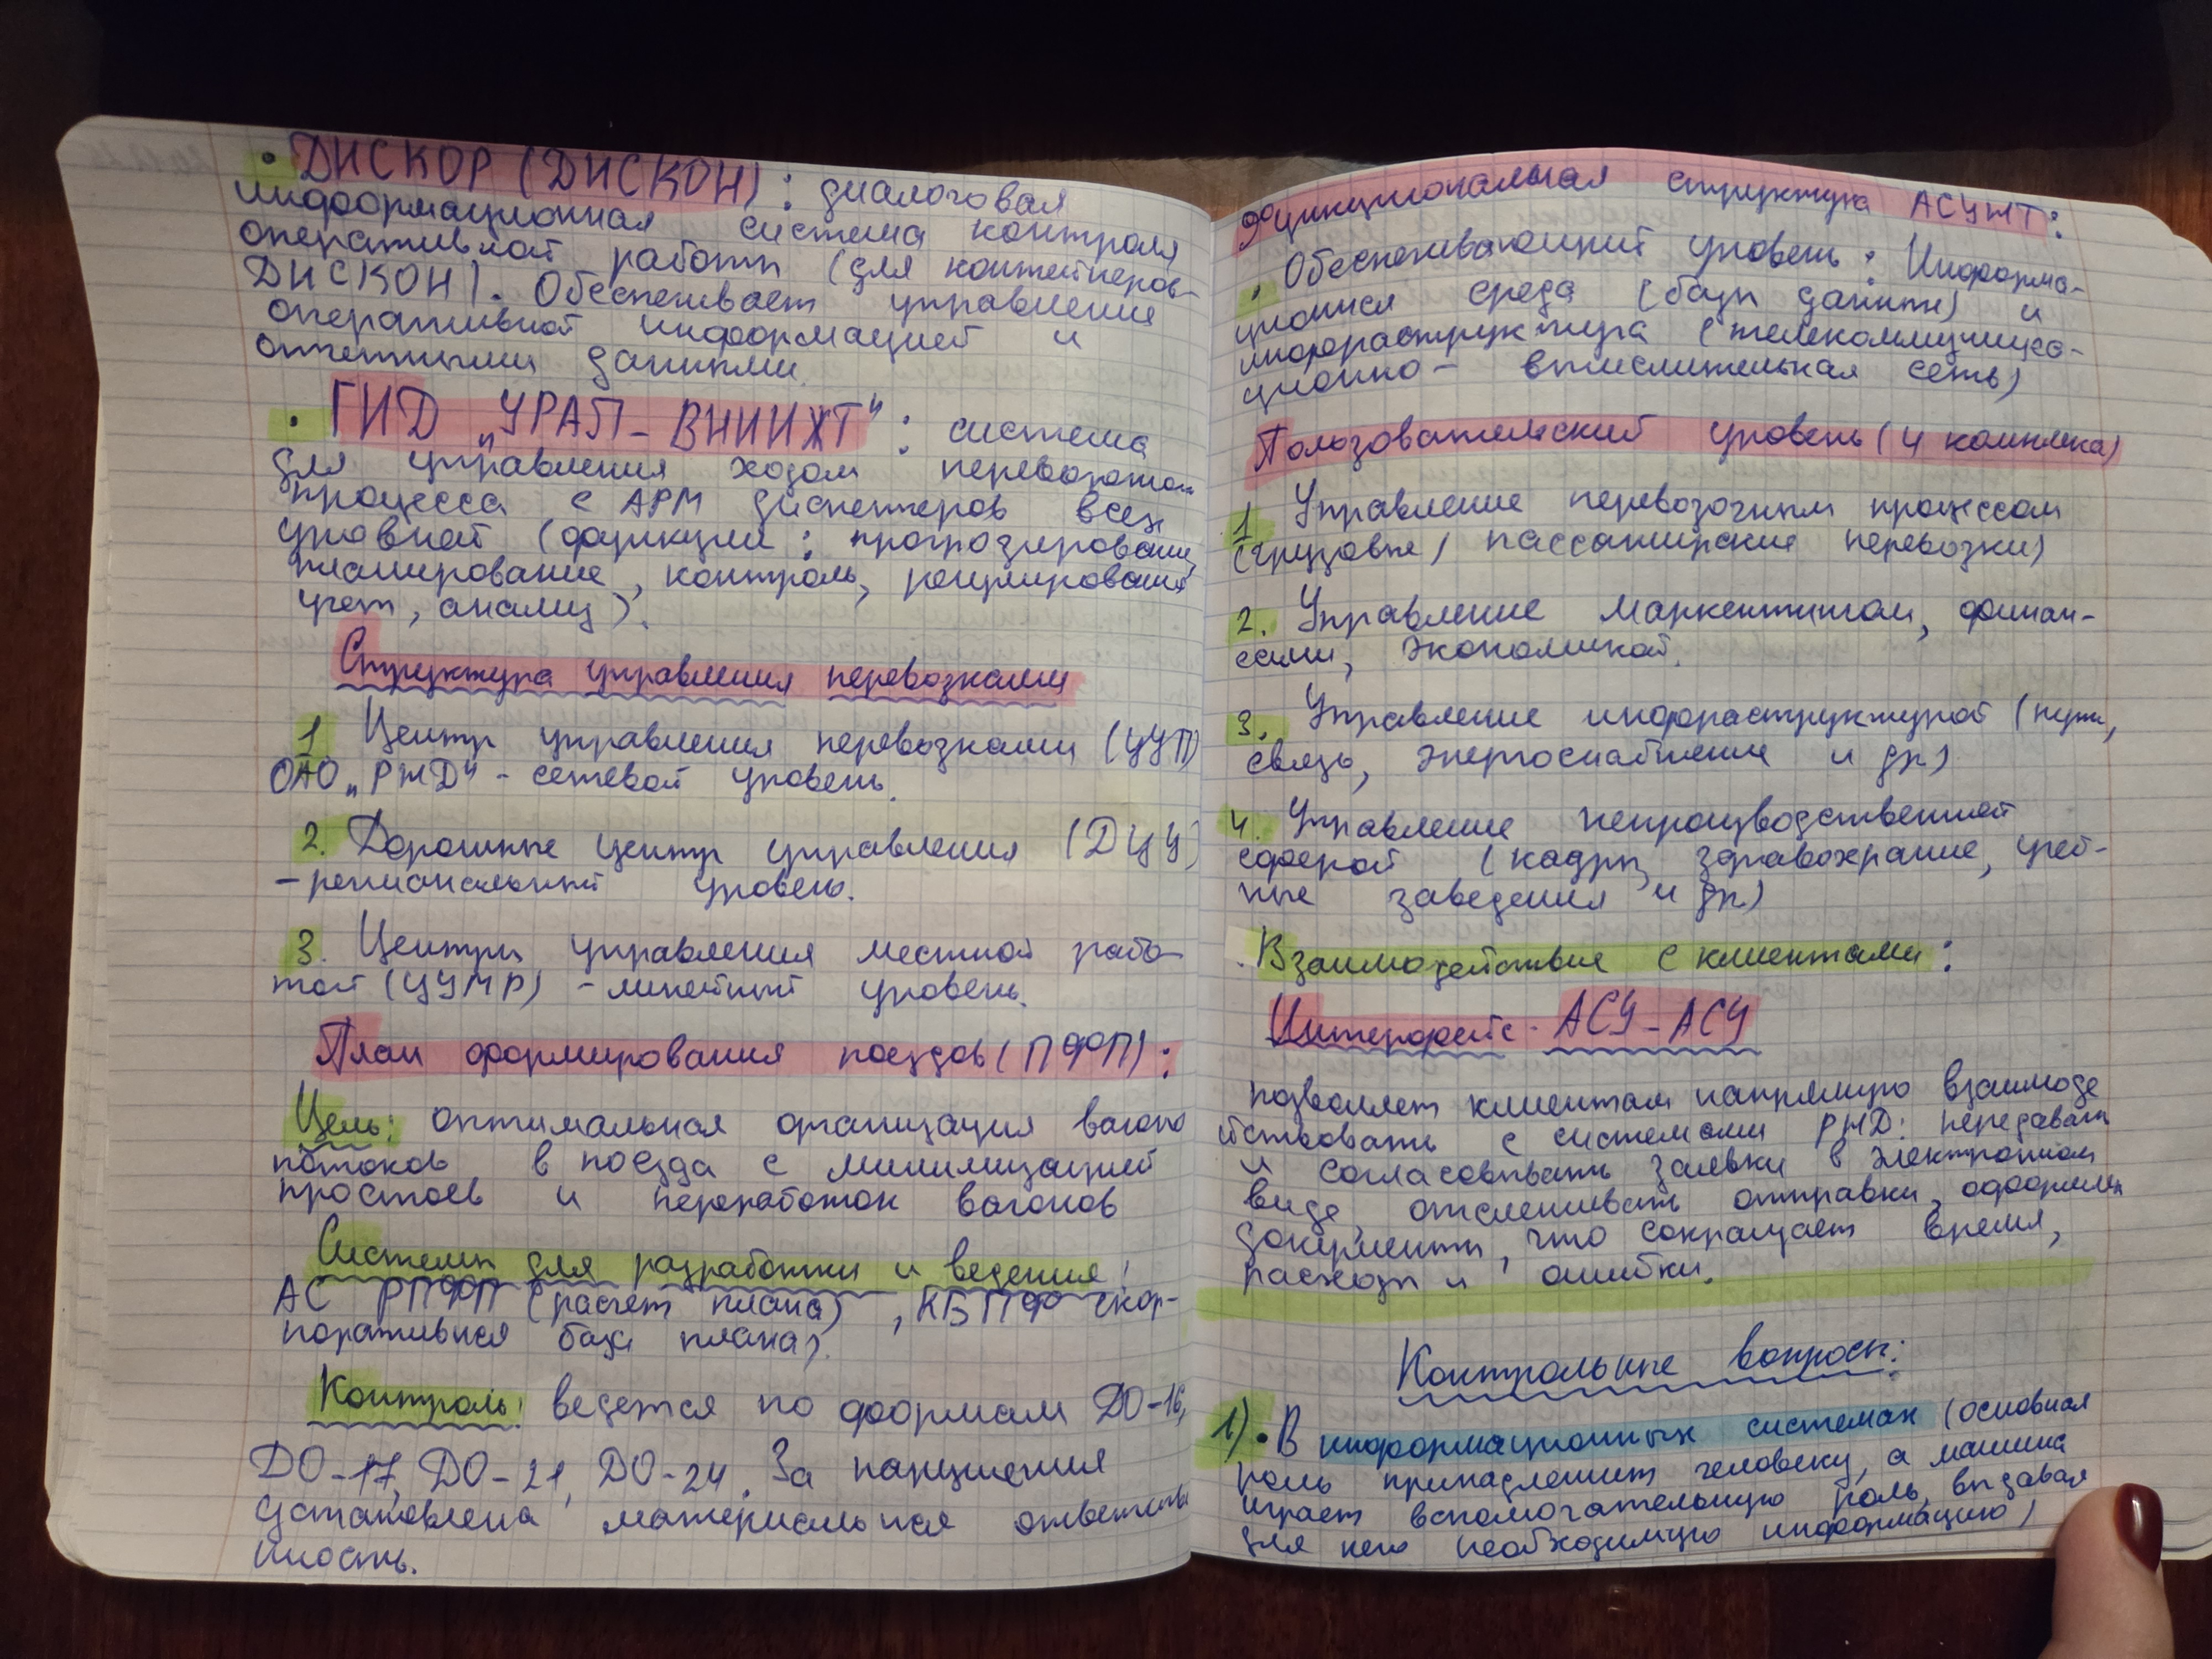 • ДИСКОР (ДИСКОН): диалоговая
информационная система контроля
оперативной работы (для контейнеров-
ДИСКОН). Обеспечивает управления
оперативной информацией и
отчетными данными.
• ГИД „УРАЛ-ВНИИЖТ": система
для управления ходом перевозочн.
процесса с АРМ диспетчеров всех
уровней (функции: прогнозирование,
планирование, контроль, регулирование
учет, анализ).
Структура управления перевозками
1 Центр управления перевозками (ЦУП)
ОАО „РЖД" - сетевой уровень.
2. Дорожные центр управления (ДЦУ)
- региональный уровень.
3. Центры управления местной рабо-
той (ЦУМР) - линейный уровень.
План формирования поездов (ПФП):
Цель: оптимальная организация вагоно
потоков в поезда с минимизацией
простоев и переработок вагонов
Системы для разработки и ведения:
АС РПФП (расчет плана), КБПФ (кор-
поративная база плана).
Контроль: ведется по формам ДО-16,
ДО-17, ДО-21, ДО-24. За нарушения
установлена материальная ответстве
нность.
Функциональная структура АСУЖТ:
• Обеспечивающий уровень: Информа-
ционная среда (базы данных) и
инфраструктура (телекоммуника-
ционно- вычислительная сеть)
Пользовательский уровень (4 комплекса)
1 Управление перевозочным процессом
(грузовые, пассажирские перевозки)
2. Управление маркентингом, финан-
сами, экономикой.
3. Управление инфраструктурой (пути,
связь, энергоснабжение и др)
4. Управление непроизводственной
сферой (кадры, здравохрание, учеб-
ные заведения и др)
Взаимодействие с клиентами:
Интерфейс АСУ-АСУ
позволяет клиентам напрямую взаимоде
йствовать с системами РЖД: передавать
и согласовывать заявки в электронном
виде, отслеживать отправки, оформлять
документы, что сокращает время,
расходы и ошибки.
Контрольные вопросы:
1) • В информационных системах (основная
роль принадлежит человеку, а машина
играет вспомогательную роль, выдавая
для него необходимую информацию)